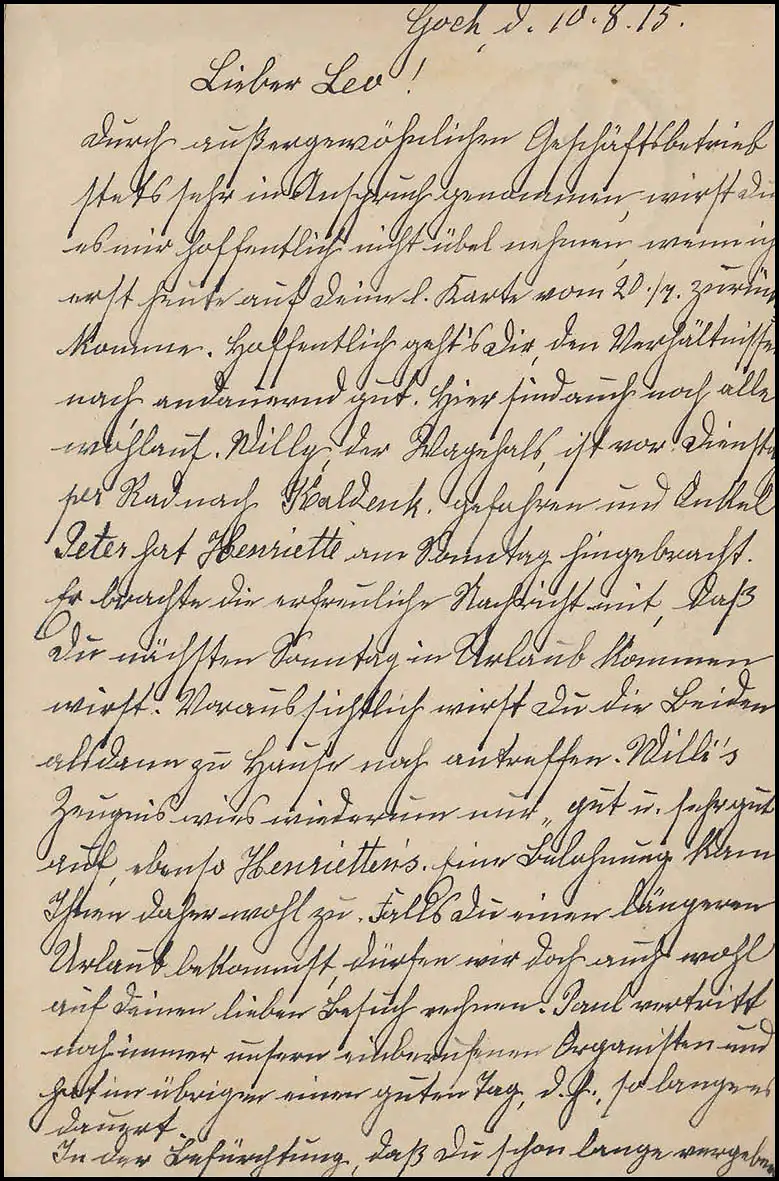 Goch, d. 10.8.15.
Lieber Leo!
Durch außergewöhnlichen Geschäftsbetrieb
stets sehr in Anspruch genommen, wirst Du
es mir hoffentlich nicht übel nehmen, wenn ich
erst heute auf Deine l. Karte vom 20./7. zurück
komme. Hoffentlich geht's Dir, den Verhältnissen
nach andauernd gut. Hier sind auch noch alle
wohlauf. Willy, der Wagehals, ist vor. Dienstag
per Rad nach Kaldenk. gefahren und Onkel
Peter hat Henriette am Sonntag hingebracht.
Er brachte die erfreuliche Nachricht mit, daß
Du nächsten Sonntag in Urlaub kommen
wirst. Voraussichtlich wirst Du die Beiden
alsdann zu Hause noch antreffen. Willi's
Zeugnis wies wiederum nur „gut u. sehr gut
auf, ebenso Henrietten's. Eine Belohnung kam
Ihnen daher wohl zu. Falls Du einen längeren
Urlaub bekommst, dürfen wir doch auch wohl
auf Deinen lieben Besuch rechnen. Paul vertritt
noch immer unsern einberufenen Organisten und
hat im übrigen einen guten Tag, d. h., so lange es
dauert.
In der Befürchtung, daß Du schon lange vergeben